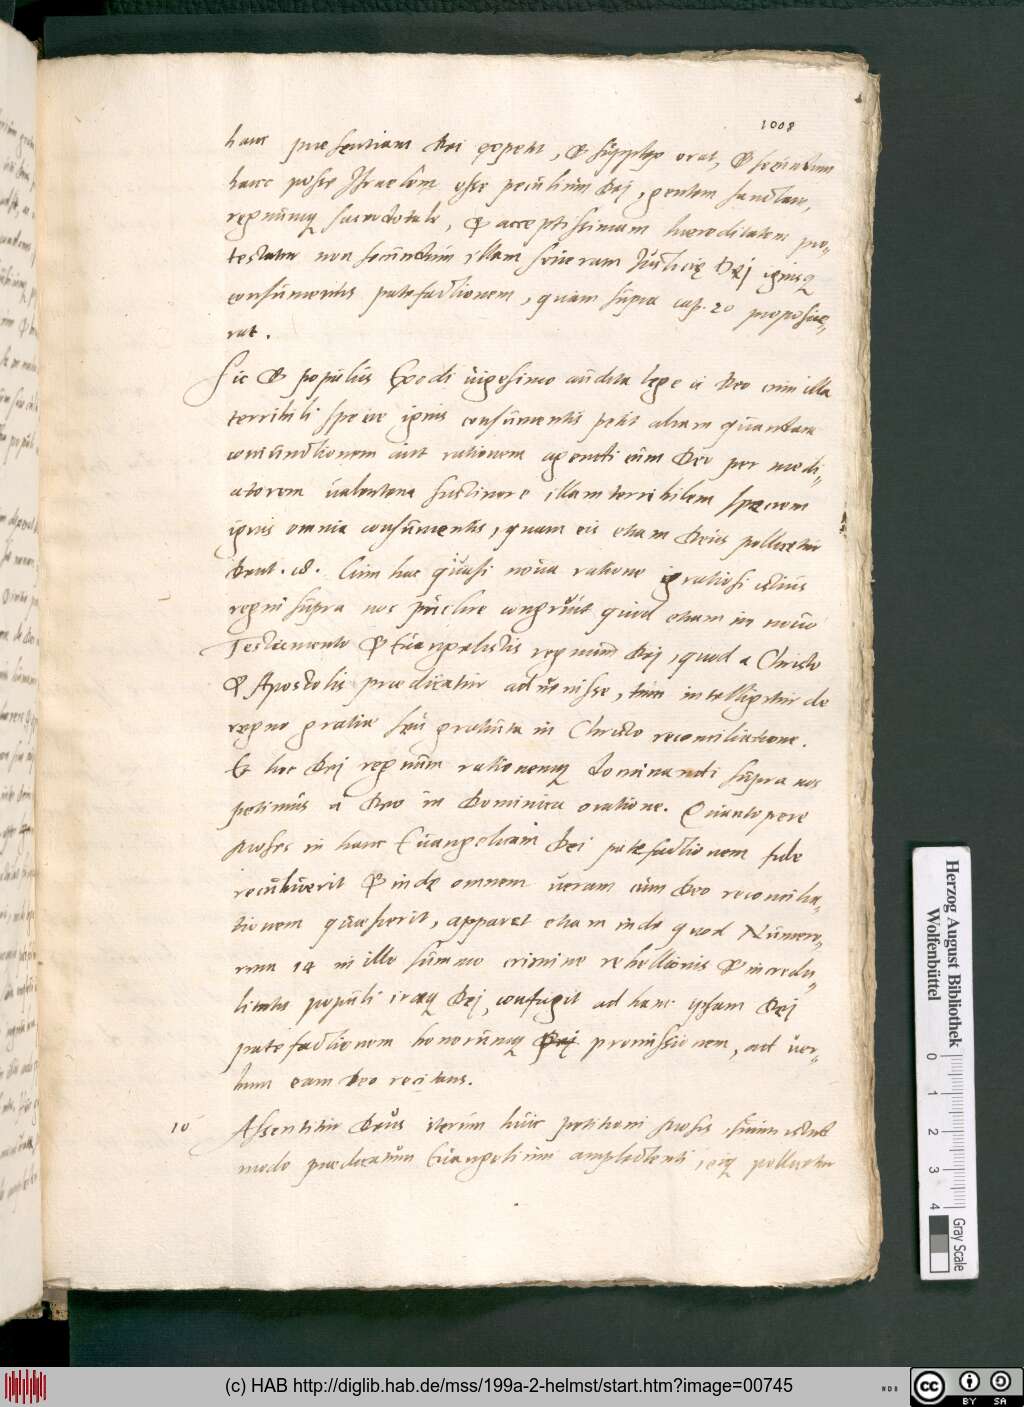 1008
hanc praesentiam Dei expetit, & supplex orat, & secundum
hanc posse Israelem esse peculium Dei, gentem sanctam,
regnumq sacerdotale, & acceptissimam haereditatem pro„
testatur non secundum illam severam Justicię Dei ignisq
consumentis patefactionem, quam supra cap. 20 proposue„
rat.
Sic & populus Exodi uigesimo audita lege a Deo cum illa
terribili specie ignis consumentis petit aliam quandam
coniunctionem aut rationem agendi cum Deo per medi„
atorem ualentem sustinere illam terribilem speciem
ignis omnia consumentis, quam eis etiam Deus pollicetur
Deut. 18. Cum hac quasi noua ratione gratiosi istius
regni supra nos pulchre congruit quod etiam in nouo
Testamento & Euangelistis regnum Dei, quod a Christo
& Apostolis praedicatur aduenisse, tum intelligitur de
regno gratiae seu gratuita in Christo reconciliatione.
Et hoc Dei regnum rationemq dominandi supra nos
petimus a Deo in Dominica oratione. Quantopere
Moses in hanc Euangelicam Dei patefactionem fide
recubuerit & inde omnem ueram cum Deo reconcilia„
tionem quaesierit, apparet etiam inde quod Numero„
rum 14 in illo summo crimine rebellionis & incredu„
litatis populi iraeq Dei, confugit ad hanc ipsam Dei
patefactionem bonorumq Dei promissionem, ad uer„
bum eam Deo recitans.
10 Assentitur Deus iterum huic petitioni Mosis, suum istud
modo praedicatum Euangelium amplectenti, eiq pollicetur
Herzog August Bibliothek
Wolfenbüttel
0 1 2 3 4
Gray Scale
(c) HAB http://diglib.hab.de/mss/199a-2-helmst/start.htm?image=00745
CC BY SA